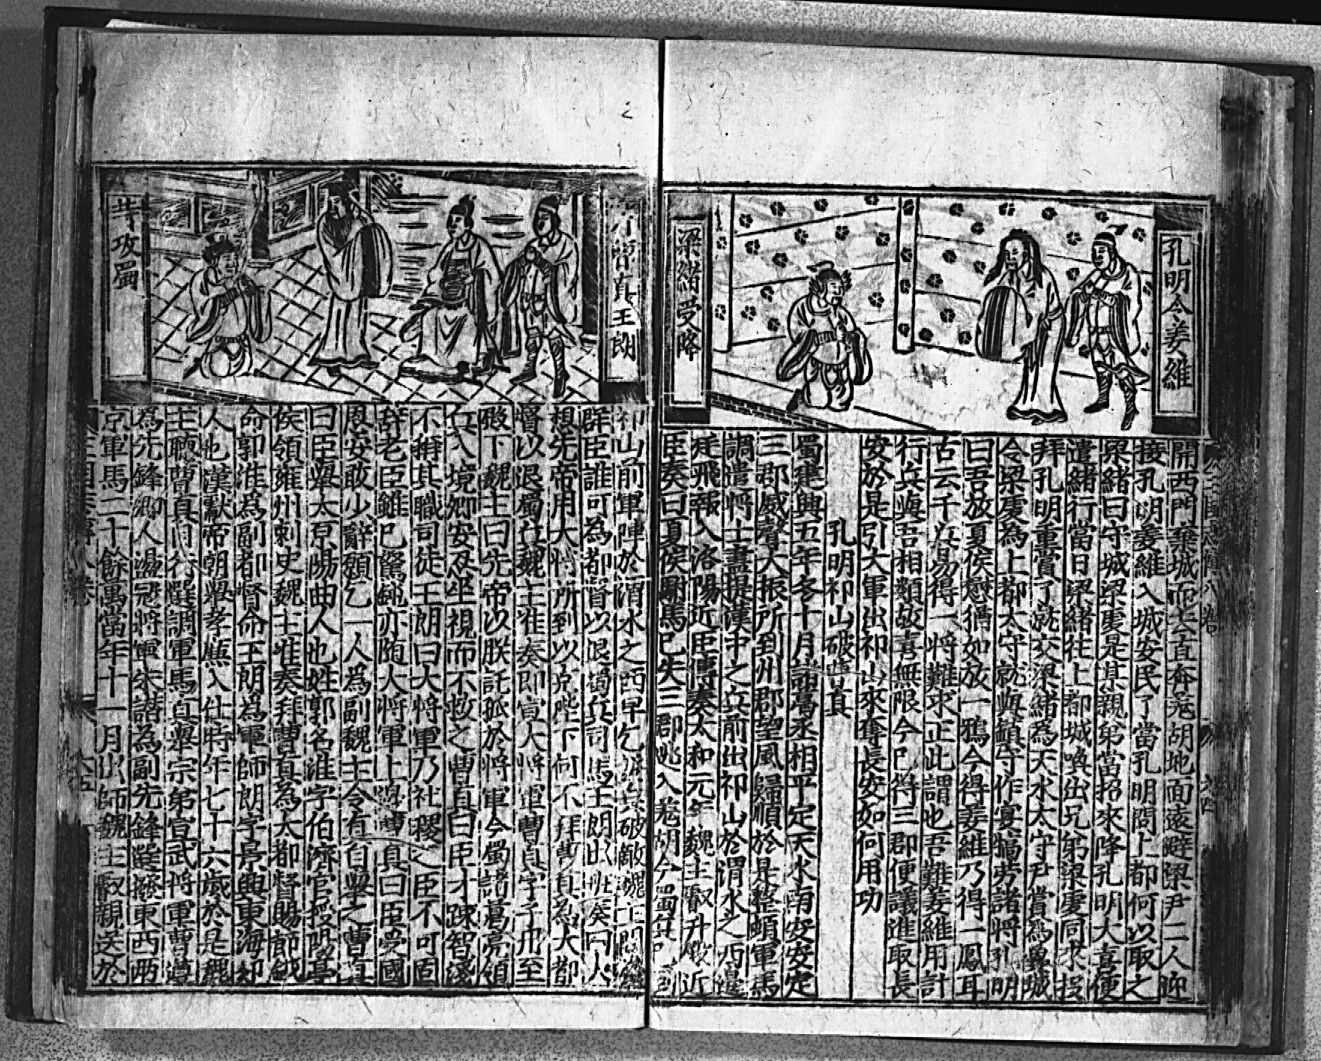 孔明令姜維
梁緒受降
開西門棄城而走直奔羌胡地面遠避梁尹二人迎
接孔明姜維入城安民了當孔明問上郡何以取之
梁緒曰守城梁虔是某親弟當招來降孔明大喜便
遣緒行當日梁緒往上都城喚出兄弟梁虔同來投
拜孔明重賞了就交梁緒為天水太守尹賞為冀城
令梁虔為上都太守就與鎮守作宴犒勞諸將孔明
曰吾放夏侯楙猶如放一鴉今得姜維乃得一鳳耳
古云千兵易得一將難求正此謂也吾難姜維用計
行兵與吾相類故喜無限今已得三郡便議進取長
安於是引大軍出祁山來奪長安如何用功
孔明祁山破曹真
蜀建興五年冬十月諸葛丞相平定天水南安安定
三郡威聲大振所到州郡望風歸順於是整頓軍馬
調遣將士盡提漢中之兵前出祁山於渭水之西邊
廷飛報入洛陽近臣傳奏太和元年魏主叡升殿近
臣奏曰夏侯駙馬已失三郡逃入羌胡今蜀兵已到
曹真王朗
攻蜀
祁山前軍陣於渭水之西早乞 兵破敵魏主問
群臣誰可為都督以退蜀兵司馬王朗出班奏曰人
想先帝用大將所到必克陛下何不拜曹真為大都
督以退蜀兵魏主准奏即宣大將軍曹真字子丹至
殿下魏主曰先帝以朕託孤於將軍今蜀諸葛亮領
兵入境卿安忍坐視而不救之曹真曰臣才疎智淺
不稱其職司徒王朗曰大將軍乃社稷之臣不可固
辭老臣雖已駑鈍亦隨大將軍上 曹真曰臣受國
恩安敢少辭願乞一人為副魏主令有自舉之曹真
曰臣舉太原陽曲人也姓郭名淮字伯濟官授陽亭
侯領雍州刺史魏主准奏拜曹真為大都督賜節鉞
命郭淮為副都督命王朗為軍師朗字景興東海郯
人也漢獻帝朝舉孝廉入仕時年七十六歲於是魏
主聽曹真自行選調軍馬真舉宗弟宣武將軍曹遵
為先鋒鄉人盪寇將軍朱讃為副先鋒選撥東西兩
京軍馬二十餘萬當年十一月出師魏主叡親送於